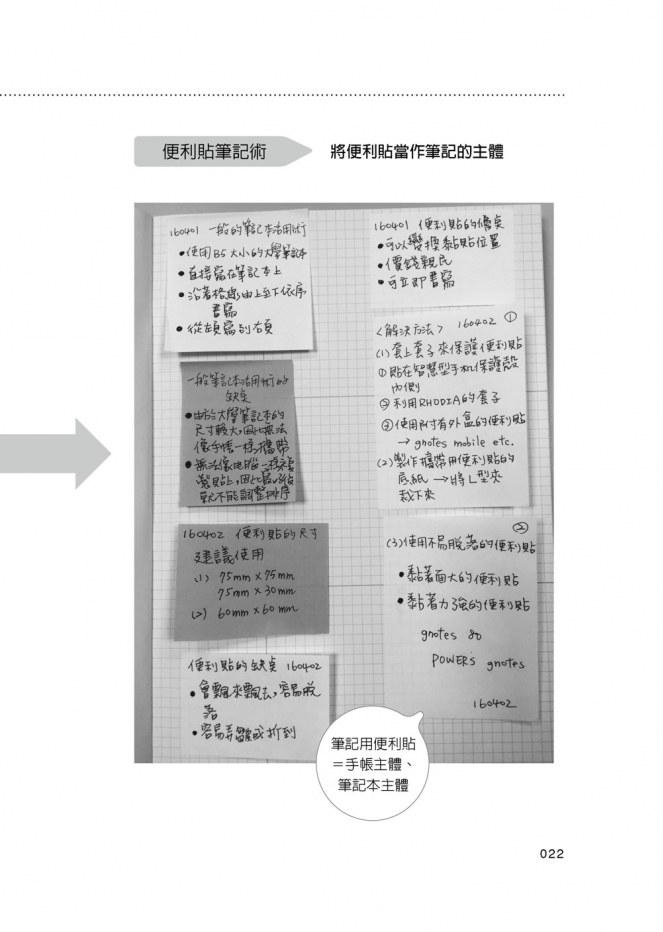 便利貼筆記術
將便利貼當作筆記的主體
160401 一般的筆記本活用術
•使用B5大小的大學筆記本
•直接寫在筆記本上
•沿著格線由上至下依序
書寫
•從左頁寫到右頁
一般筆記本活用術的
缺點
•由於大學筆記本的
尺寸較大,因此無法
像手帳一樣攜帶
•無法像電腦一樣複
製貼上,因此寫
就不能調整排序
160402 便利貼的尺寸
建議使用
(1) 75mm×75mm
75mm×30mm
(2) 60mm×60mm
便利貼的缺點 160402
•會飄來飄去,容易脫
落
•容易弄皺或折到
160401 便利貼的優點
•可以變換黏貼位置
•價錢親民
•可立即書寫
<解決方法> 160402 ①
(1)套上套子來保護便利貼
①貼在智慧型手机保護殼
內側
②利用RHODIA的套子
③使用附有外盒的便利貼
→ gnotes mobile etc.
(2)製作攜帶用便利貼的
底紙→將L型夾
裁下來
②
(3)使用不易脫落的便利貼
•黏著面大的便利貼
•黏著力強的便利貼
gnotes 80
POWER's gnotes
160402
筆記用便利貼
=手帳主體、
筆記本主體
022